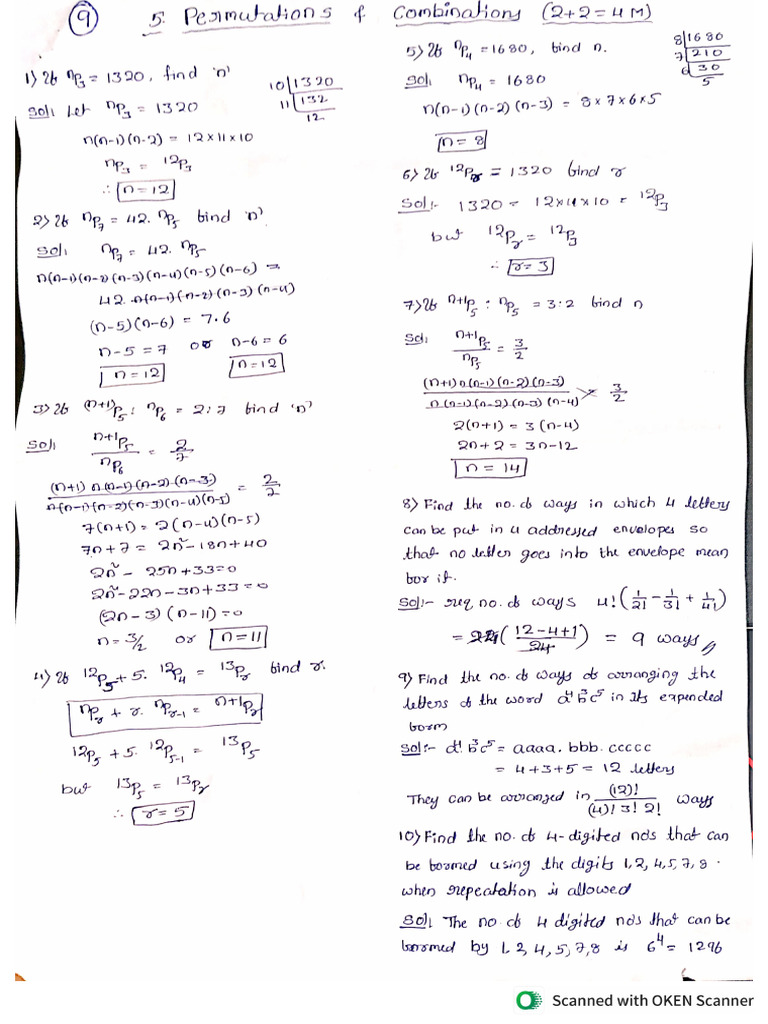 9
5. Permutations & Combinations (2+2=4M)
1) If nP3 = 1320, find 'n'
Sol: Let nP3 = 1320
10 | 1320
11 | 132
12
n(n-1)(n-2) = 12×11×10
nP3 = 12P3
∴ n=12
2) If nP7 = 42. nP5 find 'n'.
Sol: nP7 = 42. nP5
n(n-1)(n-2)(n-3)(n-4)(n-5)(n-6) =
42. n(n-1)(n-2)(n-3)(n-4)
(n-5)(n-6) = 7.6
n-5=7 or n-6=6
n=12 n=12
3) If (n+1)P5 : nP6 = 2:7 find 'n'
Sol: n+1P5 / nP6 = 2/7
(n+1) n(n-1)(n-2)(n-3) / n(n-1)(n-2)(n-3)(n-4)(n-5) = 2/7
7(n+1) = 2(n-4)(n-5)
7n+7 = 2n²-18n+40
2n²-25n+33=0
2n²-22n-3n+33=0
(2n-3)(n-11)=0
n=3/2 or n=11
4) If 12P5+5. 12P4 = 13Pr find r.
nPr + r. nPr-1 = n+1Pr
12P5+5. 12P5-1 = 13P5
but 13P5 = 13Pr
∴ r=5
5) If nP4 = 1680, find n.
Sol: nP4 = 1680
8 | 1680
7 | 210
6 | 30
5
n(n-1)(n-2)(n-3) = 8×7×6×5
n=8
6) If 12Pr = 1320 find r
Sol:- 1320 = 12×11×10 = 12P3
but 12Pr = 12P3
∴ r=3
7) If n+1P5 : nP5 = 3:2 find n
Sol: n+1P5 / nP5 = 3/2
(n+1)n(n-1)(n-2)(n-3) / n(n-1)(n-2)(n-3)(n-4) = 3/2
2(n+1) = 3(n-4)
2n+2 = 3n-12
n=14
8) Find the no. of ways in which 4 letters
can be put in 4 addressed envelopes so
that no letter goes into the envelope mean
for it.
Sol:- req no. of ways 4!(1/2! - 1/3! + 1/4!)
= 24(12-4+1 / 24) = 9 ways
9) Find the no. of ways of arranging the
letters of the word a⁴b³c⁵ in its expended
form
Sol:- a⁴b³c⁵ = aaaa. bbb. ccccc
= 4+3+5 = 12 letters
They can be arranged in (12)! / (4)! 3! 2! ways
10) Find the no. of 4-digited nos that can
be formed using the digits 1,2,4,5,7,8.
when repeatation is allowed
Sol: The no. of 4 digited nos that can be
formed by 1,2,4,5,7,8 is 6⁴ = 1296
Scanned with OKEN Scanner